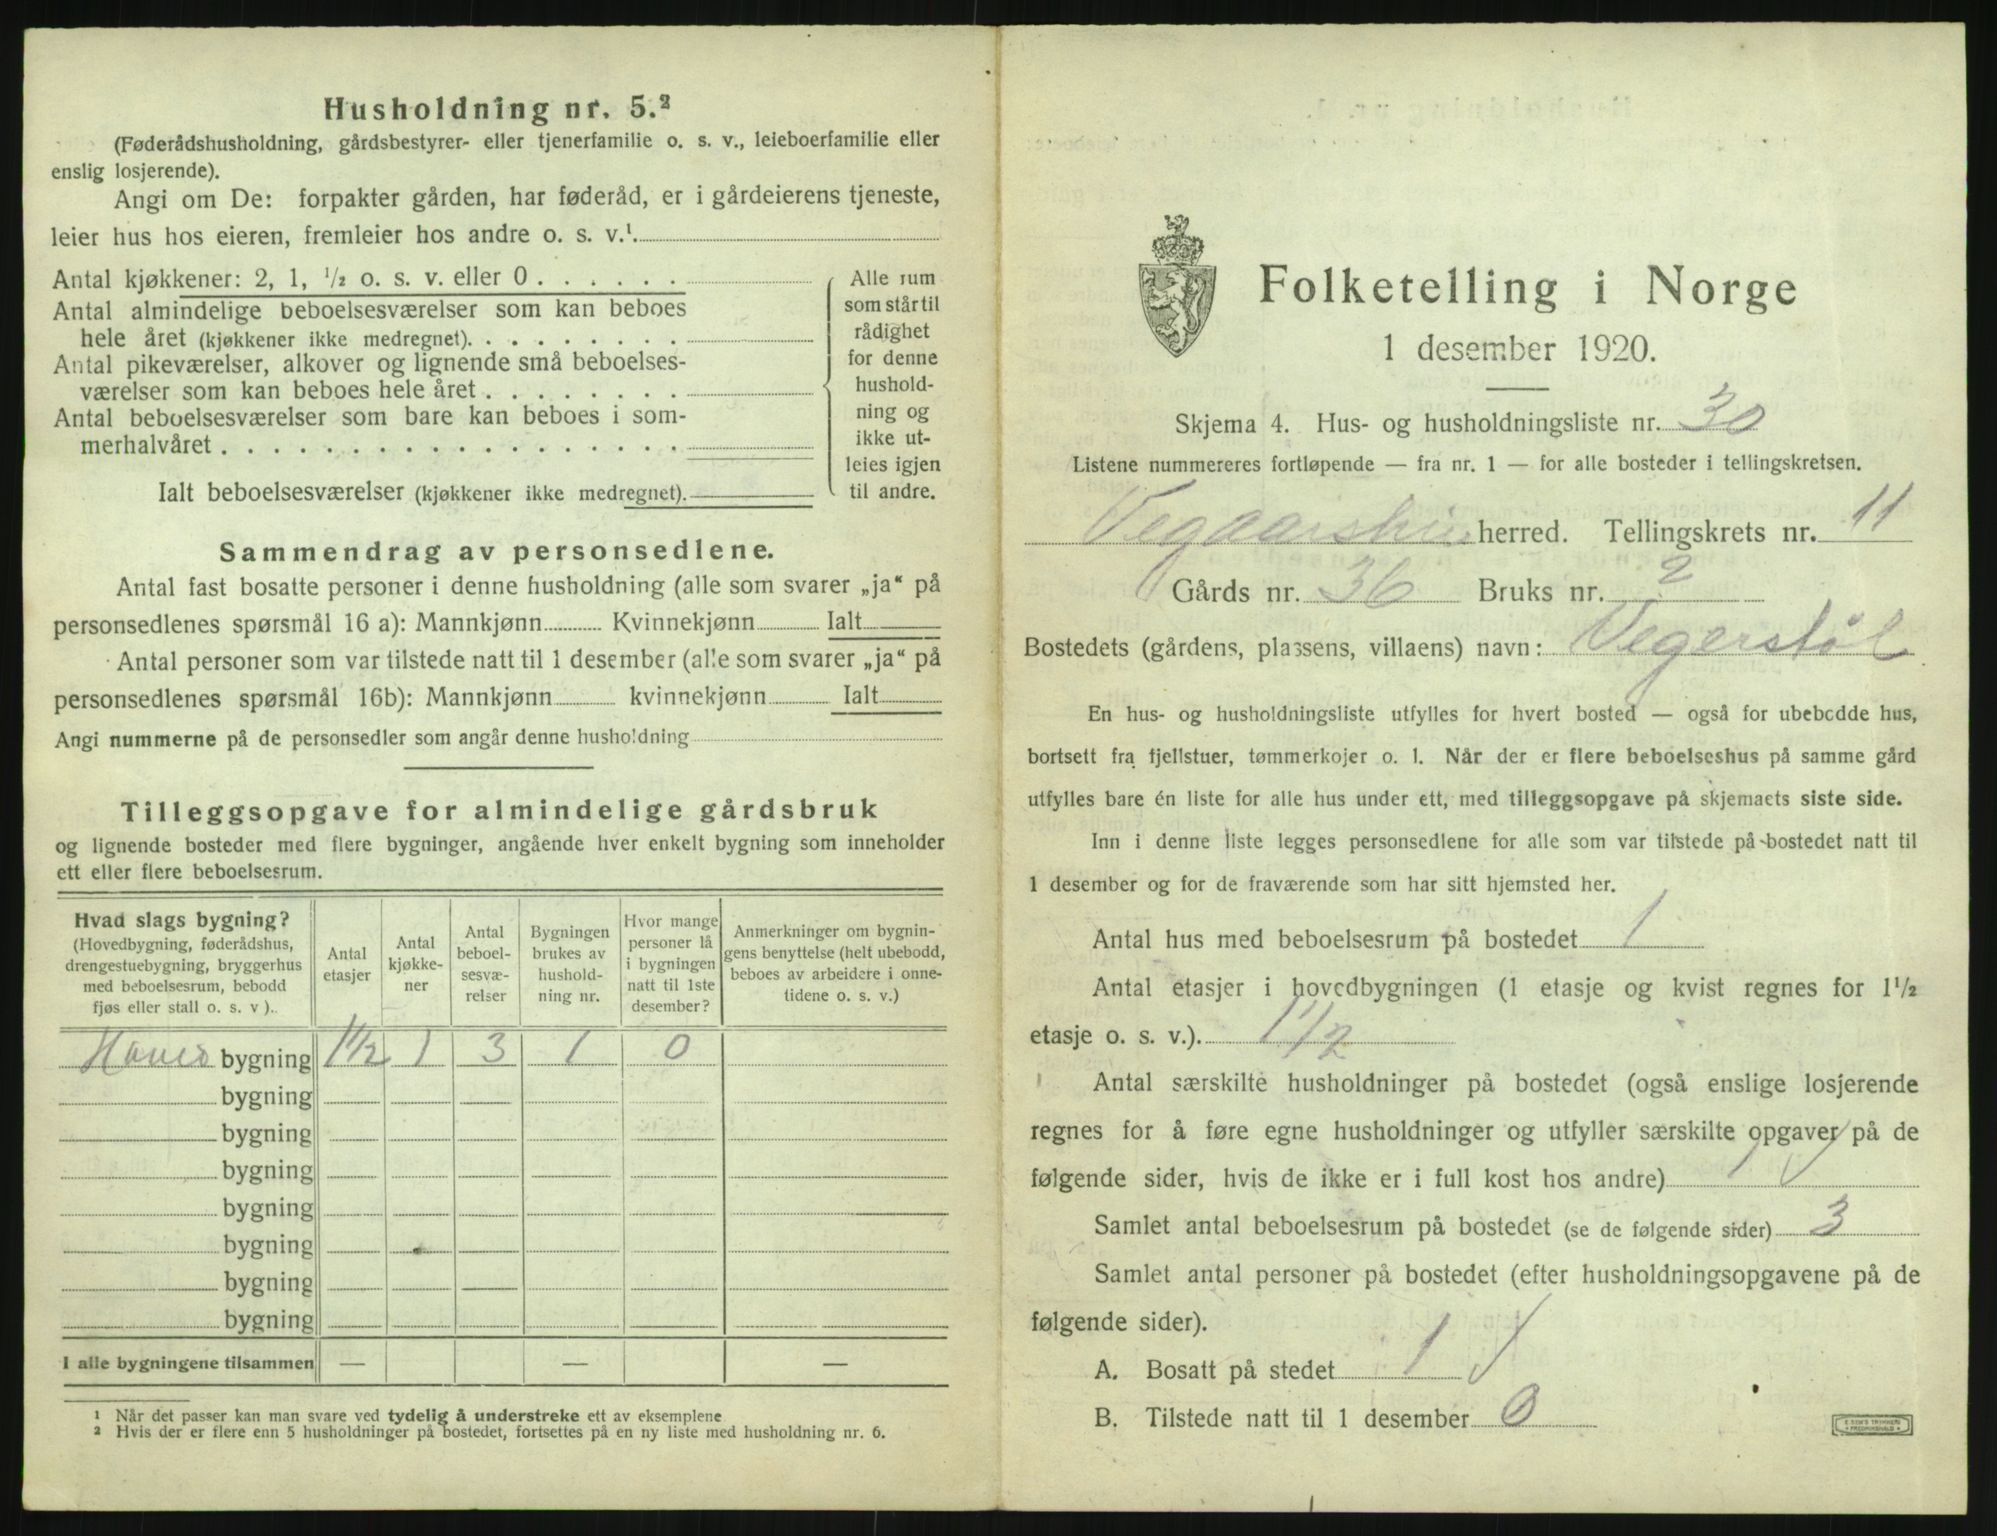 Husholdning nr. 5.²
(Føderådshusholdning, gårdsbestyrer- eller tjenerfamilie o. s. v., leieboerfamilie eller
enslig losjerende).
Angi om De: forpakter gården, har føderåd, er i gårdeierens tjeneste,
leier hus hos eieren, fremleier hos andre o. s. v.¹
Antal kjøkkener: 2, 1, ½ o. s. v. eller 0 . . . . . .
Antal almindelige beboelsesværelser som kan beboes
hele året (kjøkkener ikke medregnet). . . . . . . . .
Antal pikeværelser, alkover og lignende små beboelses-
værelser som kan beboes hele året . . . . . . . .
Antal beboelsesværelser som bare kan beboes i som-
merhalvåret . . . . . . . . . . . . . . . . . .
Ialt beboelsesværelser (kjøkkener ikke medregnet).
Alle rum
som står til
rådighet
for denne
hushold-
ning og
ikke ut-
leies igjen
til andre.
Sammendrag av personsedlene.
Antal fast bosatte personer i denne husholdning (alle som svarer „ja“ på
personsedlenes spørsmål 16 a): Mannkjønn Kvinnekjønn Ialt
Antal personer som var tilstede natt til 1 desember (alle som svarer „ja“ på
personsedlenes spørsmål 16b): Mannkjønn kvinnekjønn Ialt
Angi nummerne på de personsedler som angår denne husholdning
Tilleggsopgave for almindelige gårdsbruk
og lignende bosteder med flere bygninger, angående hver enkelt bygning som inneholder
ett eller flere beboelsesrum.
Hvad slags bygning?
(Hovedbygning, føderådshus,
drengestuebygning, bryggerhus
med beboelsesrum, bebodd
fjøs eller stall o. s. v ).
Antal
etasjer
Antal
kjøkke-
ner
Antal
beboel-
sesvæ-
relser
Bygningen
brukes av
hushold-
ning nr.
Hvor mange
personer lå
i bygningen
natt til 1ste
desember?
Anmerkninger om bygnin-
gens benyttelse (helt ubebodd,
beboes av arbeidere i onne-
tidene o. s. v.)
bygning 1½ 1 3 1 0
bygning
bygning
bygning
bygning
bygning
bygning
bygning
I alle bygningene tilsammen — — —
¹ Når det passer kan man svare ved tydelig å understreke ett av eksemplene
² Hvis der er flere enn 5 husholdninger på bostedet, fortsettes på en ny liste med husholdning nr. 6.
Folketelling i Norge
1 desember 1920.
Skjema 4. Hus- og husholdningsliste nr. 30
Listene nummereres fortløpende — fra nr. 1 — for alle bosteder i tellingskretsen.
Vegaarshei herred. Tellingskrets nr. 11
Gårds nr. 36 Bruks nr. 2
Bostedets (gårdens, plassens, villaens) navn: Vegerstøl
En hus- og husholdningsliste utfylles for hvert bosted — også for ubebodde hus,
bortsett fra fjellstuer, tømmerkojer o. l. Når der er flere beboelseshus på samme gård
utfylles bare én liste for alle hus under ett, med tilleggsopgave på skjemaets siste side.
Inn i denne liste legges personsedlene for alle som var tilstede på bostedet natt til
1 desember og for de fraværende som har sitt hjemsted her.
Antal hus med beboelsesrum på bostedet 1
Antal etasjer i hovedbygningen (1 etasje og kvist regnes for 1½
etasje o. s. v.). 1½
Antal særskilte husholdninger på bostedet (også enslige losjerende
regnes for å føre egne husholdninger og utfyller særskilte opgaver på de
følgende sider, hvis de ikke er i full kost hos andre) 1
Samlet antal beboelsesrum på bostedet (se de følgende sider) 3
Samlet antal personer på bostedet (efter husholdningsopgavene på de
følgende sider).
A. Bosatt på stedet 1
B. Tilstede natt til 1 desember 0